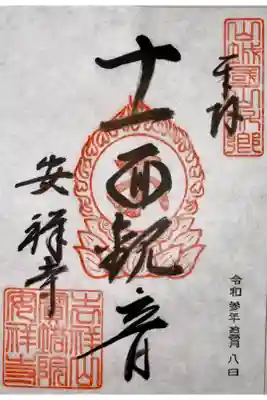 山城國山科郷
奉拝
十一面観音
安祥寺
吉祥山
寶塔院
安祥寺
令和参年 月八日